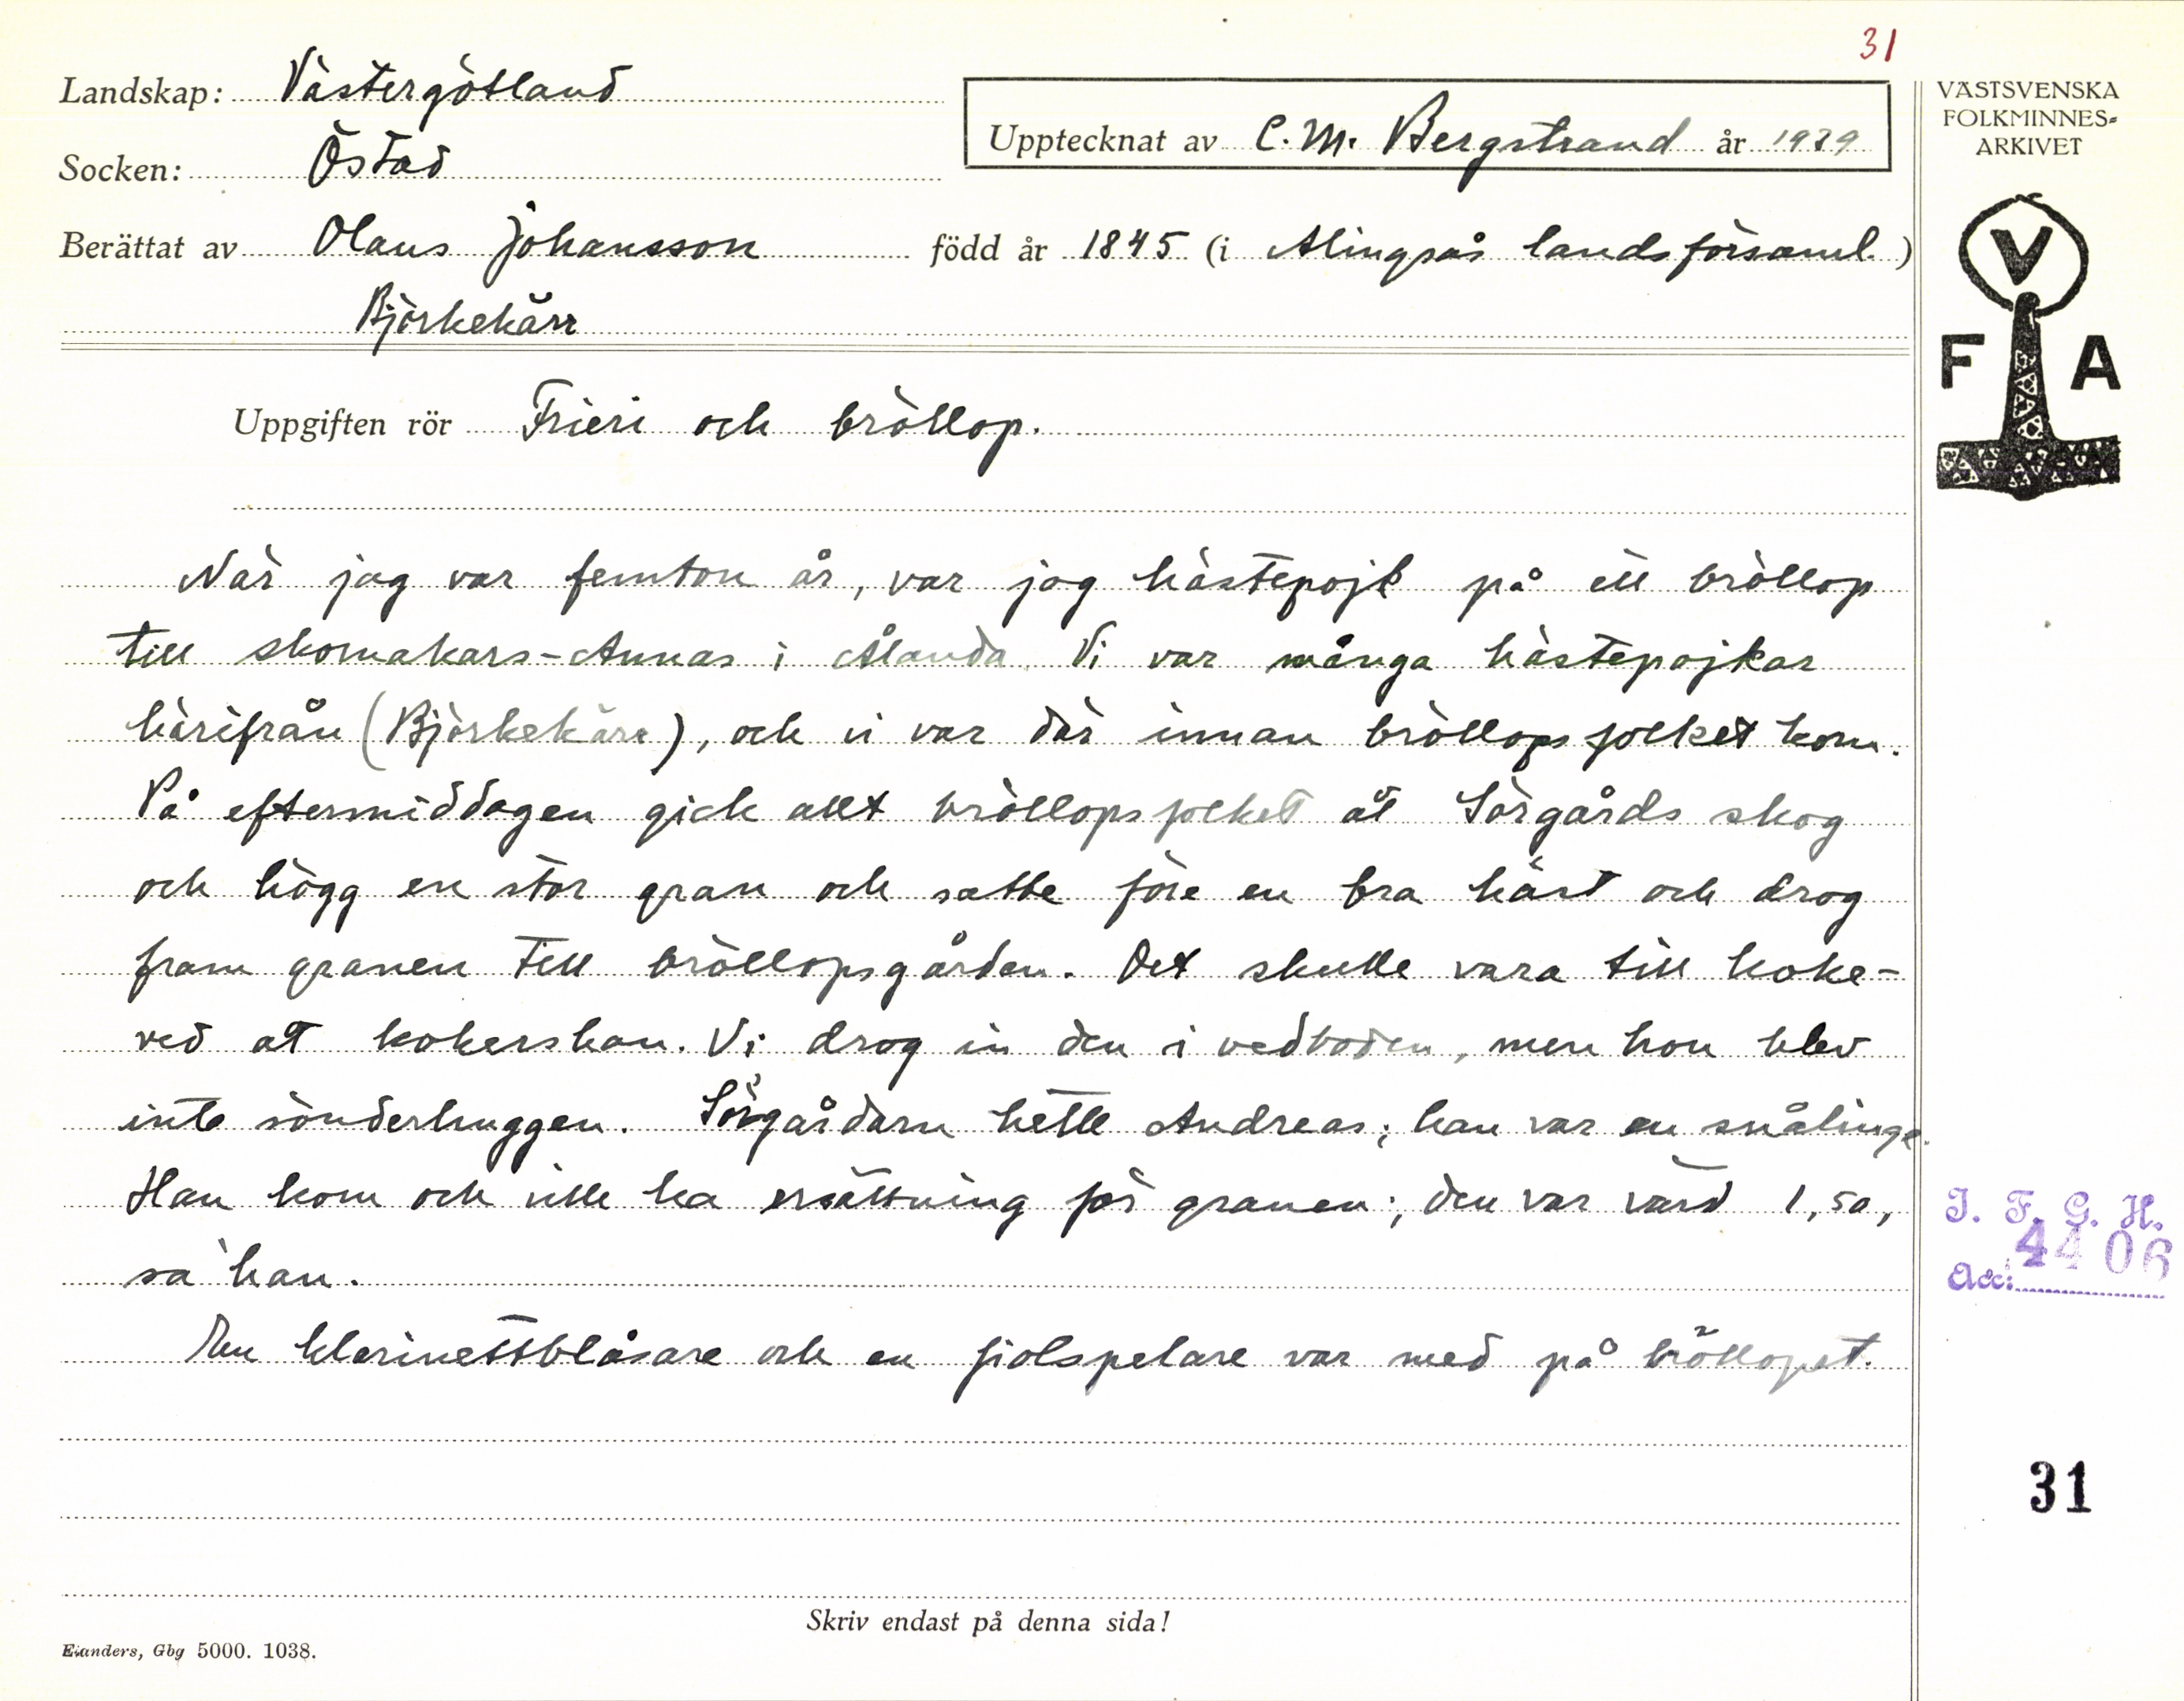 31
Landskap: Västergötland
Socken: Östad
Upptecknat av C. M. Bergstrand år 1939
Berättat av Olaus Johansson född år 1845 (i Alingsås landsförsaml.)
Björkekärr
VÄSTSVENSKA
FOLKMINNES-
ARKIVET
V
F A
Uppgiften rör Frieri och bröllop.
När jag var femton år, var jag hästepojk på ett bröllop
till skomakars-Annas i Ålanda. Vi var många hästepojkar
härifrån (Björkekärr), och vi var där innan bröllopsfolket kom.
På eftermiddagen gick allt bröllopsfolket åt Sörgårds skog
och högg en stor gran och satte före en bra häst och drog
fram granen till bröllopsgården. Det skulle vara till koke-
ved åt kokerskan. Vi drog in den i vedboden, men hon blev
inte sönderhuggen. Sörgårdarn hette Andreas; han var en snålinge.
Han kom och ville ha ersättning för granen; den var värd 1,50,
sa han.
En klarinettblåsare och en fiolspelare var med på bröllopet.
I. F. G. H.
Acc: 4406
31
Skriv endast på denna sida!
Elanders, Gbg 5000. 1038.